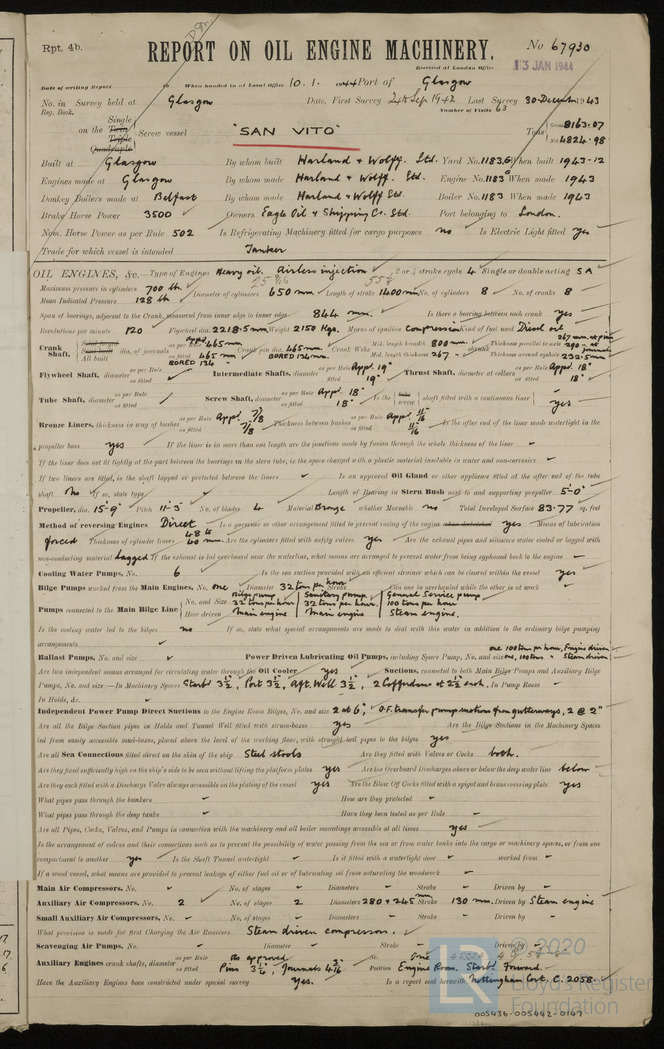 Rpt. 4b.
REPORT ON OIL ENGINE MACHINERY.
No 67930
Received at London Office 13 JAN 1944
Date of writing Report 19 When handed in at Local Office 10.1.1944 Port of Glasgow
No. in Survey held at Glasgow Date, First Survey 24th Sep 1942 Last Survey 30-December 1943
Reg. Book. Number of Visits 63
Single
on the Twin Screw vessel "SAN VITO" Tons Gross 8163.07
Triple
Quadruple Net 4824.98
Built at Glasgow By whom built Harland & Wolff. Ltd. Yard No. 1183.G When built 1943-12
Engines made at Glasgow By whom made Harland & Wolff. Ltd. Engine No. 1183 G When made 1943
Donkey Boilers made at Belfast By whom made Harland & Wolff Ltd. Boiler No. 1183 When made 1943
Brake Horse Power 3500 Owners Eagle Oil & Shipping Co. Ltd. Port belonging to London.
Nom. Horse Power as per Rule 502 Is Refrigerating Machinery fitted for cargo purposes no Is Electric Light fitted yes
Trade for which vessel is intended Tanker
OIL ENGINES, &c.—Type of Engines Heavy oil. Airless injection 2 or 4 stroke cycle 4 Single or double acting SA
Maximum pressure in cylinders 700 lb Diameter of cylinders 650 mm Length of stroke 1400 mm No. of cylinders 8 No. of cranks 8
Mean Indicated Pressure 128 lb
Span of bearings, adjacent to the Crank, measured from inner edge to inner edge 844 mm. Is there a bearing between each crank yes
Revolutions per minute 120 Flywheel dia. 2218.5 mm Weight 2150 Kgs. Means of ignition Compression Kind of fuel used Diesel oil
Crank Shaft, Solid forged Semi built All built dia. of journals as per Rule Appd 465 mm as fitted 465 mm BORED 134 Crank pin dia. 465 mm BORED 134 mm Crank Webs Mid. length breadth 800 mm Mid. length thickness 267 shrunk Thickness parallel to axis 267 mm at pin 290 at journals Thickness around eyehole 232.5 mm
Flywheel Shaft, diameter as per Rule as fitted Intermediate Shafts, diameter as per Rule Appd. 19" as fitted 19" Thrust Shaft, diameter at collars as per Rule Appd. 18" as fitted 18"
Tube Shaft, diameter as per Rule as fitted Screw Shaft, diameter as per Rule Appd. 18" as fitted 18" Is the tube screw shaft fitted with a continuous liner yes
Bronze Liners, thickness in way of bushes as per Rule Appd. 7/8 as fitted 7/8 Thickness between bushes as per Rule Appd. 11/16 as fitted 11/16 Is the after end of the liner made watertight in the
propeller boss yes If the liner is in more than one length are the junctions made by fusion through the whole thickness of the liner -
If the liner does not fit tightly at the part between the bearings in the stern tube, is the space charged with a plastic material insoluble in water and non-corrosive -
If two liners are fitted, is the shaft lapped or protected between the liners - Is an approved Oil Gland or other appliance fitted at the after end of the tube
shaft No If so, state type - Length of Bearing in Stern Bush next to and supporting propeller 5'-0"
Propeller, dia. 15'-9" Pitch 11'-3" No. of blades 4 Material Bronze whether Moveable no Total Developed Surface 83.77 sq. feet
Method of reversing Engines Direct Is a governor or other arrangement fitted to prevent racing of the engine when declutched yes Means of lubrication
forced Thickness of cylinder liners 48 to 40 mm. Are the cylinders fitted with safety valves yes Are the exhaust pipes and silencers water cooled or lagged with
non-conducting material Lagged If the exhaust is led overboard near the waterline, what means are arranged to prevent water from being syphoned back to the engine -
Cooling Water Pumps, No. 6 Is the sea suction provided with an efficient strainer which can be cleared within the vessel yes
Bilge Pumps worked from the Main Engines, No. one Diameter 32 tons per hour Stroke Can one be overhauled while the other is at work
Pumps connected to the Main Bilge Line No. and Size How driven Bilge pump 32 tons per hour Main engine Sanitary pump 32 tons per hour. Main engine General Service pump 100 tons per hour Steam engine.
Is the cooling water led to the bilges no If so, state what special arrangements are made to deal with this water in addition to the ordinary bilge pumping
arrangements -
Ballast Pumps, No. and size - Power Driven Lubricating Oil Pumps, including Spare Pump, No. and size one 100 tons per hour, Engine driven one, 100 tons " Steam driven.
Are two independent means arranged for circulating water through the Oil Cooler yes Suctions, connected to both Main Bilge Pumps and Auxiliary Bilge
Pumps, No. and size:—In Machinery Spaces Starb'd 3½, Port 3½, Aft. Well 3½, 2 Cofferdams at 2½ each. In Pump Room -
In Holds, &c. -
Independent Power Pump Direct Suctions to the Engine Room Bilges, No. and size 2 at 6", O.F. transfer pump suctions from gutterways, 2 @ 2"
Are all the Bilge Suction pipes in Holds and Tunnel Well fitted with strum-boxes yes Are the Bilge Suctions in the Machinery Spaces
led from easily accessible mud-boxes, placed above the level of the working floor, with straight tail pipes to the bilges yes
Are all Sea Connections fitted direct on the skin of the ship Steel stools Are they fitted with Valves or Cocks both.
Are they fixed sufficiently high on the ship's side to be seen without lifting the platform plates yes Are the Overboard Discharges above or below the deep water line below
Are they each fitted with a Discharge Valve always accessible on the plating of the vessel yes Are the Blow Off Cocks fitted with a spigot and brass covering plate yes
What pipes pass through the bunkers - How are they protected -
What pipes pass through the deep tanks - Have they been tested as per Rule -
Are all Pipes, Cocks, Valves, and Pumps in connection with the machinery and all boiler mountings accessible at all times yes
Is the arrangement of valves and their connections such as to prevent the possibility of water passing from the sea or from water tanks into the cargo or machinery spaces, or from one
compartment to another yes Is the Shaft Tunnel watertight - Is it fitted with a watertight door - worked from -
If a wood vessel, what means are provided to prevent leakage of either fuel oil or of lubricating oil from saturating the woodwork -
Main Air Compressors, No. - No. of stages - Diameters - Stroke - Driven by -
Auxiliary Air Compressors, No. 2 No. of stages 2 Diameters 280 & 245 mm Stroke 130 mm. Driven by Steam engine
Small Auxiliary Air Compressors, No. - No. of stages - Diameters - Stroke - Driven by -
What provision is made for first Charging the Air Receivers Steam driven compressor.
Scavenging Air Pumps, No. - Diameter - Stroke - Driven by -
Auxiliary Engines crank shafts, diameter as per Rule as approved as fitted Pins 3¼, Journals No. One Position Engine Room. Starb'd. Forward.
Have the Auxiliary Engines been constructed under special survey yes. Is a report sent herewith Nottingham Cert. C.2058.
© 2020
LR
Lloyd's Register
Foundation
005436-005442-0147